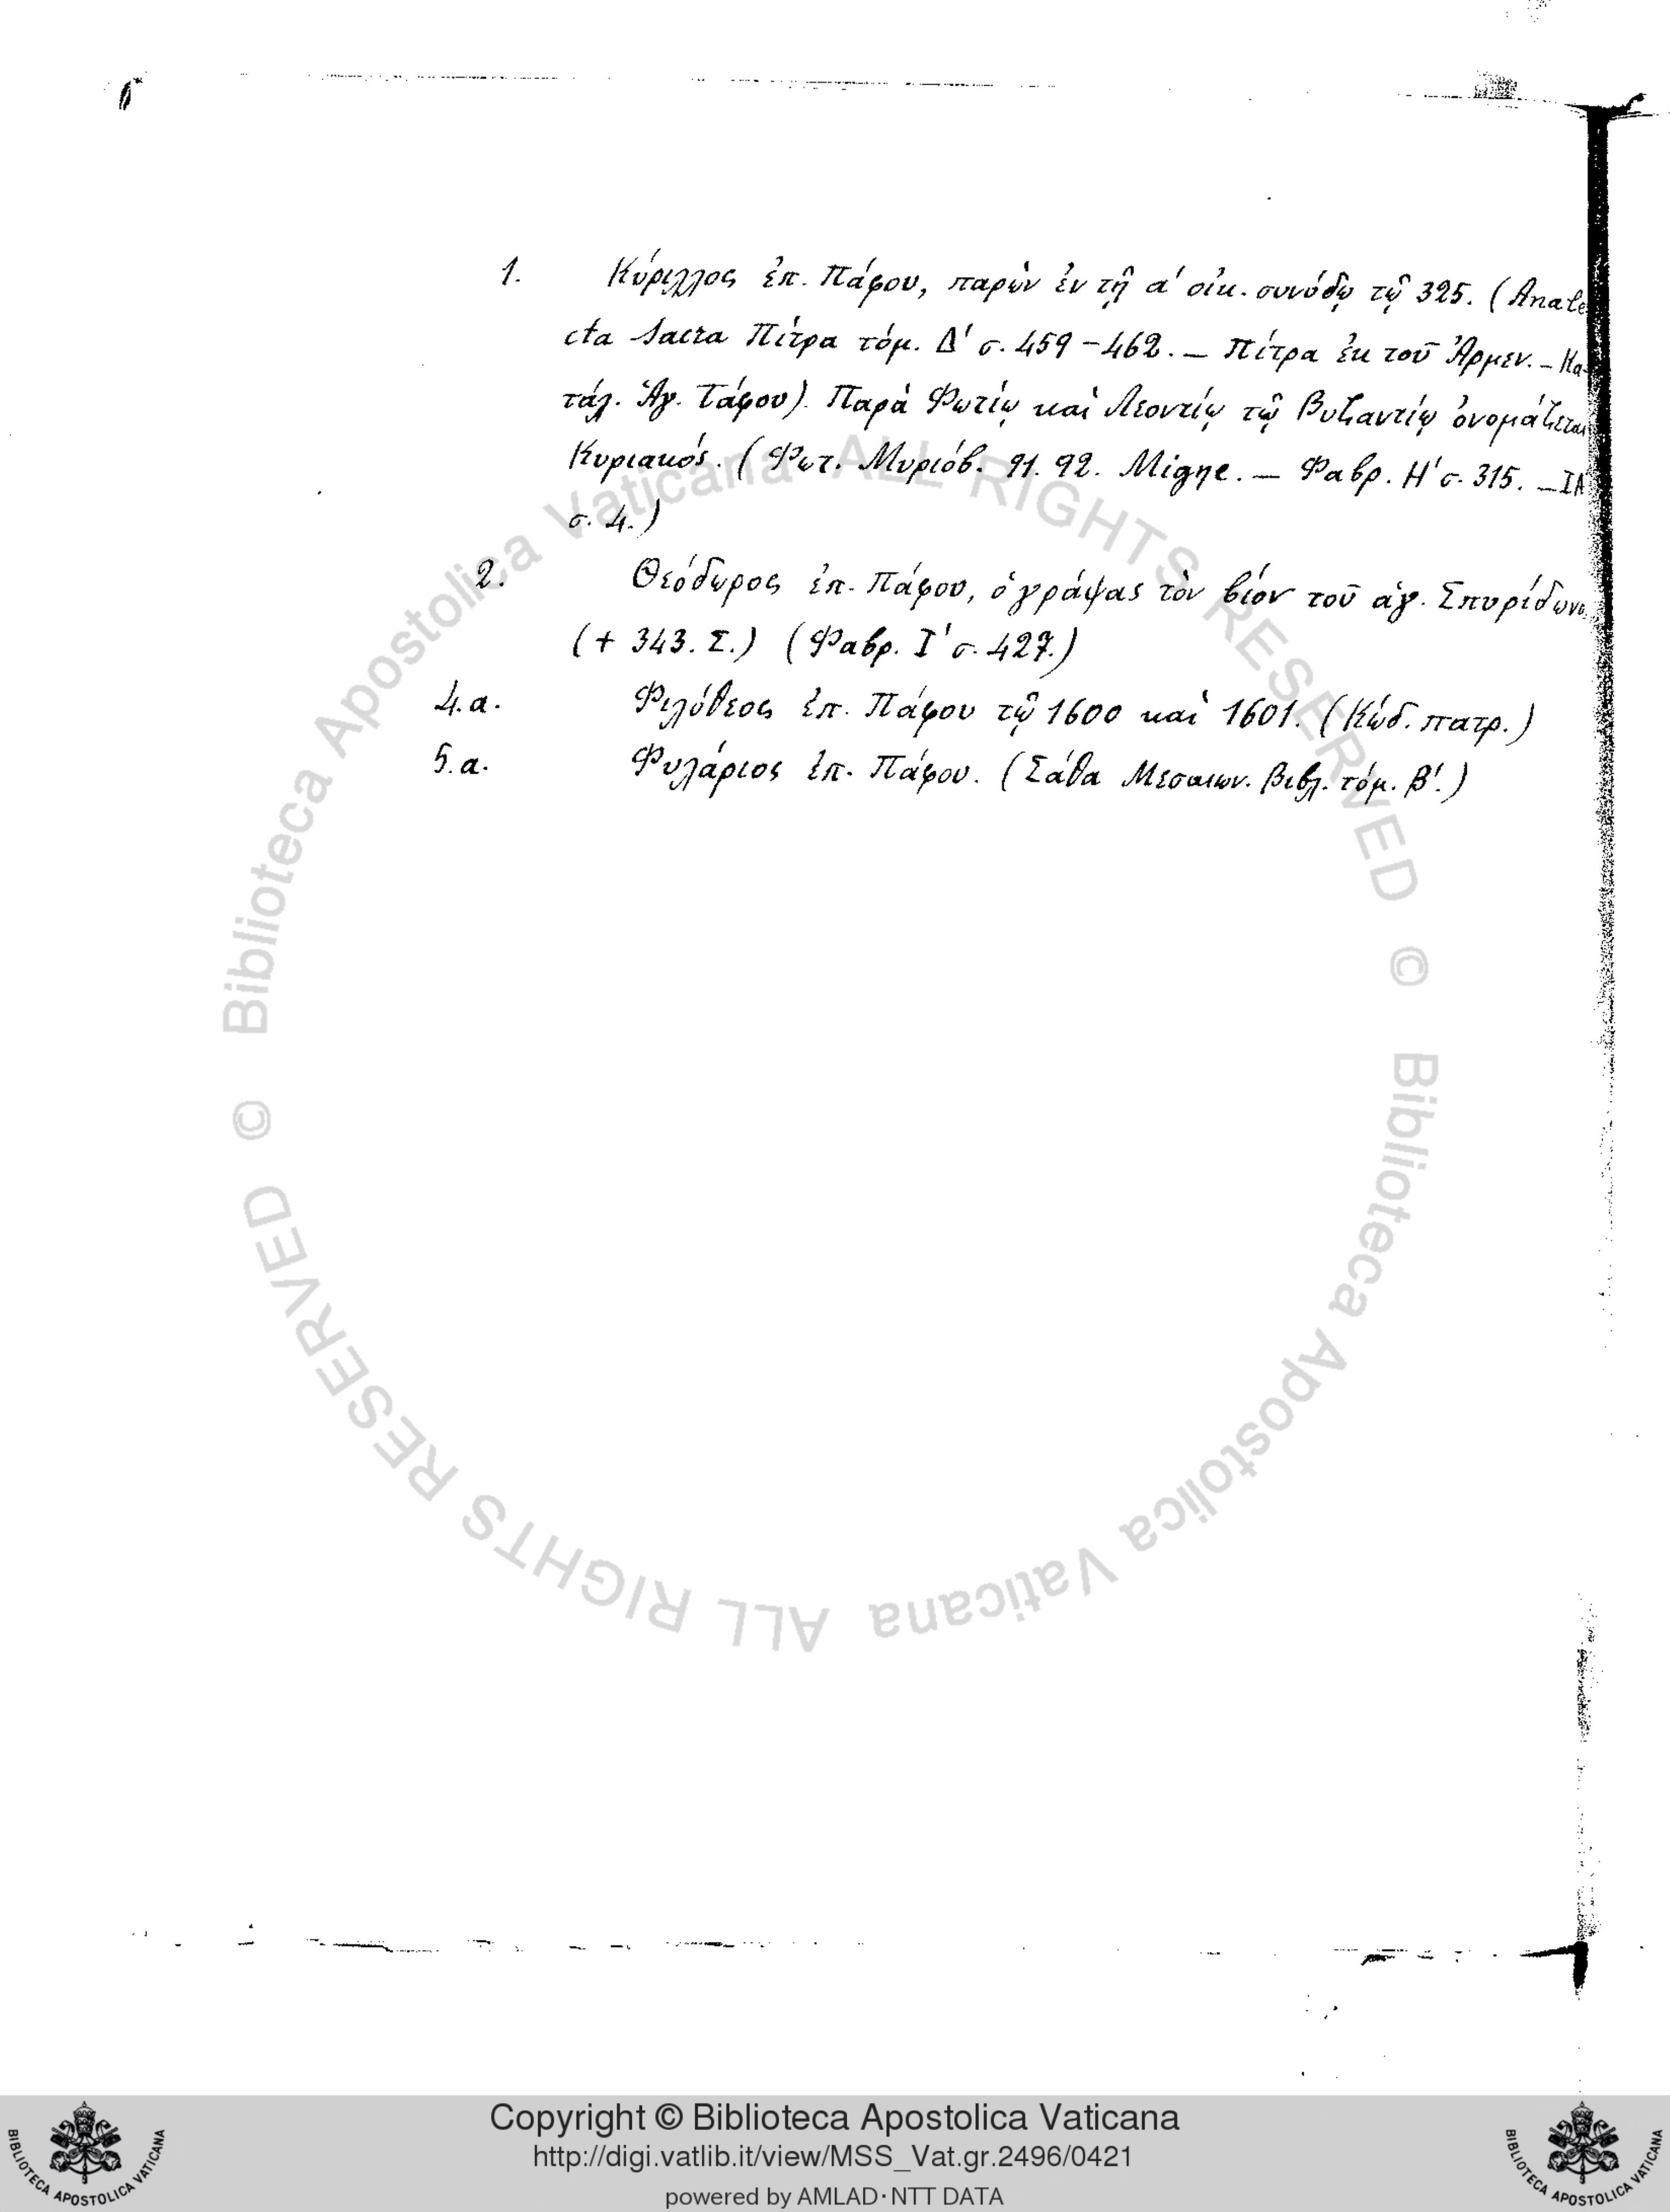 1. Κύριλλος ἐπ. Πάφου, παρὼν ἐν τῇ α' οἰκ. συνόδῳ τῷ 325. (Anale
cta Sacra Πίτρα τόμ. Δ' σ. 459-462. — Πίτρα ἐκ τοῦ Ἀρμεν. — Κα-
τάλ. Ἁγ. Τάφου). Παρὰ Φωτίῳ καὶ Λεοντίῳ τῷ Βυζαντίῳ ὀνομάζεται
Κυριακός. (Φωτ. Μυριόβ. 91. 92. Migne. — Φαβρ. Η' σ. 315. — ΙΑ
σ. 4.)
2. Θεόδωρος ἐπ. Πάφου, ὁ γράψας τὸν βίον τοῦ ἁγ. Σπυρίδωνο
(+ 343. Σ.) (Φαβρ. Ι' σ. 427.)
4.α. Φιλόθεος ἐπ. Πάφου τῷ 1600 καὶ 1601. (Κώδ. πατρ.)
5.α. Φυλάριος ἐπ. Πάφου. (Σάθα Μεσαιων. Βιβλ. τόμ. Β'.)
© Biblioteca Apostolica Vaticana ALL RIGHTS RESERVED
© Biblioteca Apostolica Vaticana ALL RIGHTS RESERVED
Copyright © Biblioteca Apostolica Vaticana
http://digi.vatlib.it/view/MSS_Vat.gr.2496/0421
powered by AMLAD·NTT DATA
BIBLIOTECA APOSTOLICA VATICANA
BIBLIOTECA APOSTOLICA VATICANA